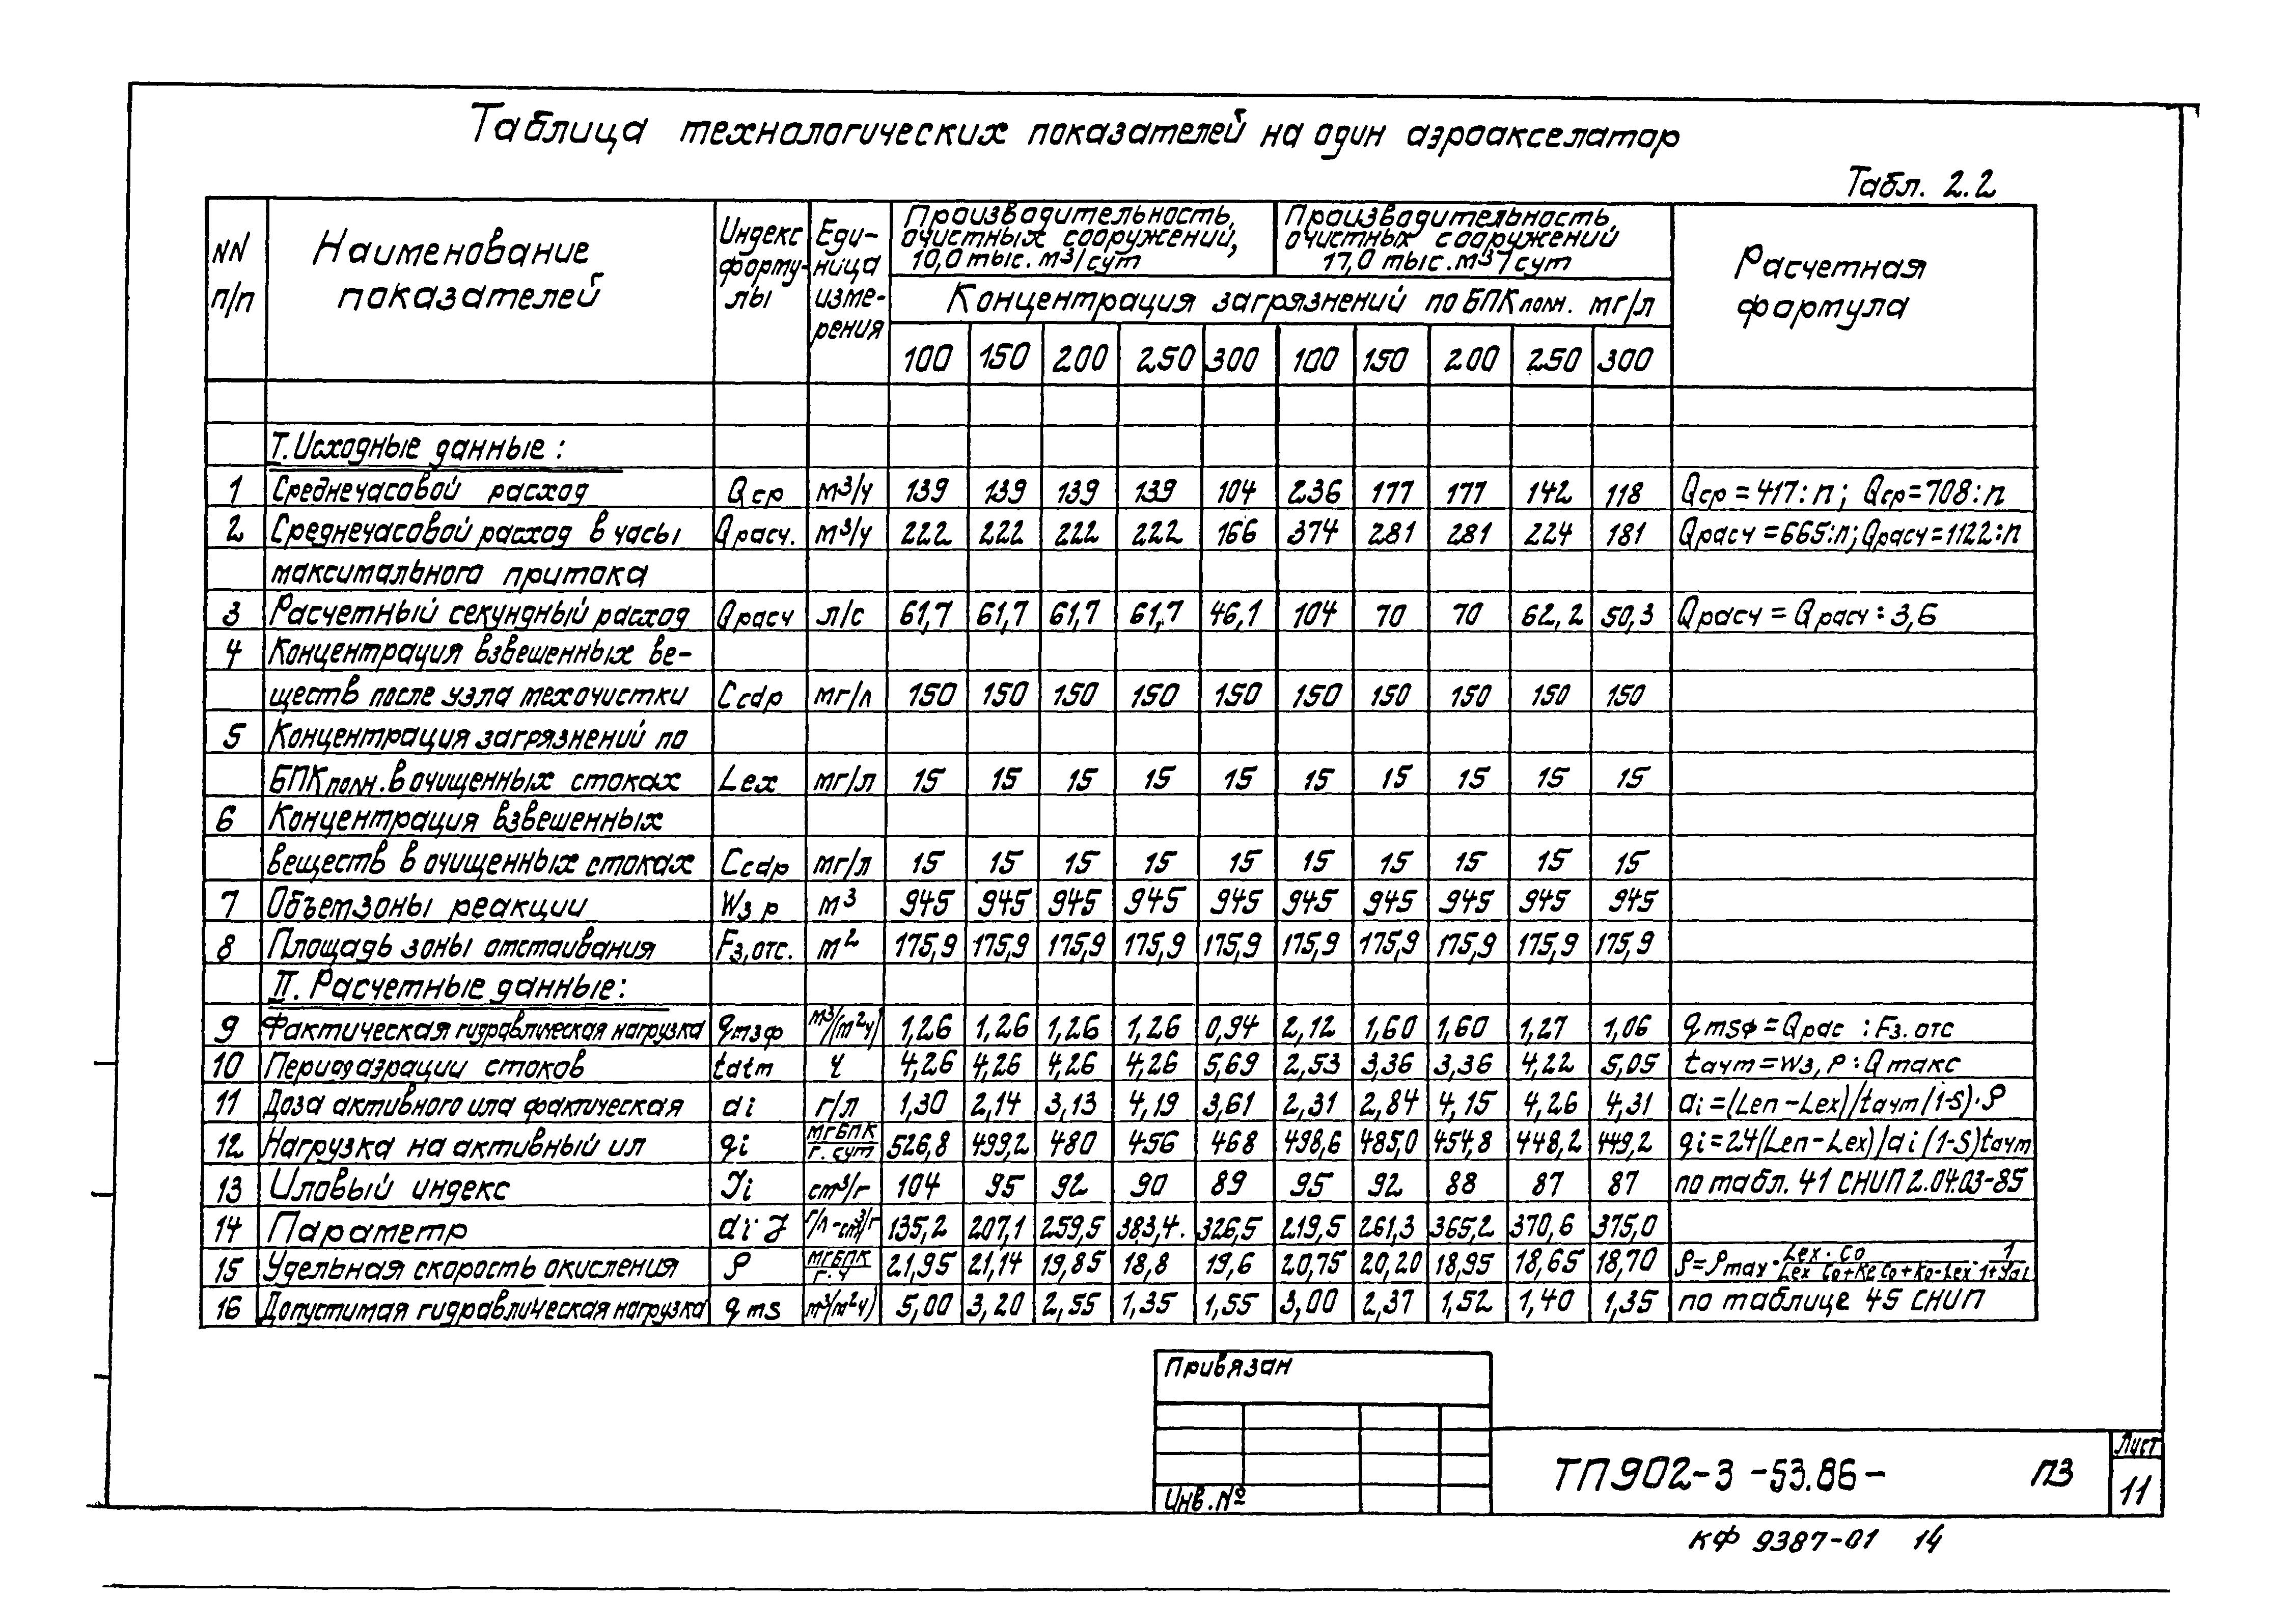 Таблица технологических показателей на один аэроакселатор
Табл. 2.2
NN п/п
Наименование показателей
Индекс форму-лы
Еди-ница изме-рения
Производительность, очистных сооружений, 10,0 тыс. м3/сут
Производительность очистных сооружений 17,0 тыс. м3/сут
Расчетная формула
Концентрация загрязнений по БПК полн. мг/л
100 150 200 250 300 100 150 200 250 300
I. Исходные данные :
1 Среднечасовой расход Qср м3/ч 139 139 139 139 104 236 177 177 142 118 Qср = 417 : п ; Qср = 708 : п
2 Среднечасовой расход в часы Qрасч. м3/ч 222 222 222 222 166 374 281 281 224 181 Qрасч = 665 : п ; Qрасч = 1122 : п
максимального притока
3 Расчетный секундный расход Qрасч л/с 61,7 61,7 61,7 61,7 46,1 104 70 70 62,2 50,3 Qрасч = Qрасч : 3,6
4 Концентрация взвешенных ве-
ществ после узла мехочистки Ccdp мг/л 150 150 150 150 150 150 150 150 150 150
5 Концентрация загрязнений по
БПК полн. в очищенных стоках Lex мг/л 15 15 15 15 15 15 15 15 15 15
6 Концентрация взвешенных
веществ в очищенных стоках Ccdp мг/л 15 15 15 15 15 15 15 15 15 15
7 Объем зоны реакции Wз р м3 945 945 945 945 945 945 945 945 945 945
8 Площадь зоны отстаивания Fз,отс. м2 175,9 175,9 175,9 175,9 175,9 175,9 175,9 175,9 175,9 175,9
II. Расчетные данные :
9 Фактическая гидравлическая нагрузка qmsф м3/(м2ч) 1,26 1,26 1,26 1,26 0,94 2,12 1,60 1,60 1,27 1,06 qmsф = Qрас : Fз.отс
10 Период аэрации стоков tatm ч 4,26 4,26 4,26 4,26 5,69 2,53 3,36 3,36 4,22 5,05 tачт = Wз, р : Q макс
11 Доза активного ила фактическая ai г/л 1,30 2,14 3,13 4,19 3,61 2,31 2,84 4,15 4,26 4,31 ai = (Len - Lex)/tачт (1-S) · ρ
12 Нагрузка на активный ил qi мгБПК/г. сут 526,8 499,2 480 456 468 498,6 485,0 454,8 448,2 449,2 qi = 24(Len - Lex)/ai (1-S) tачт
13 Иловый индекс Ji см3/г 104 95 92 90 89 95 92 88 87 87 по табл. 41 СНиП 2.04.03-85
14 Параметр ai J г/л - см3/г 135,2 207,1 259,5 383,4. 326,5 219,5 261,3 365,2 370,6 375,0
15 Удельная скорость окисления ρ мгБПК/г. ч 21,95 21,14 19,85 18,8 19,6 20,75 20,20 18,95 18,65 18,70 ρ = ρmax · Lex · Co / Lex Co + Ke Co + Ko · Lex · 1 / 1 + φai
16 Допустимая гидравлическая нагрузка qms м3/(м2ч) 5,00 3,20 2,55 1,35 1,55 3,00 2,37 1,52 1,40 1,35 по таблице 45 СНиП
Привязан
Инв. №
ТП 902-3 -53.86 - ПЗ
Лист
11
КФ 9387-01 14